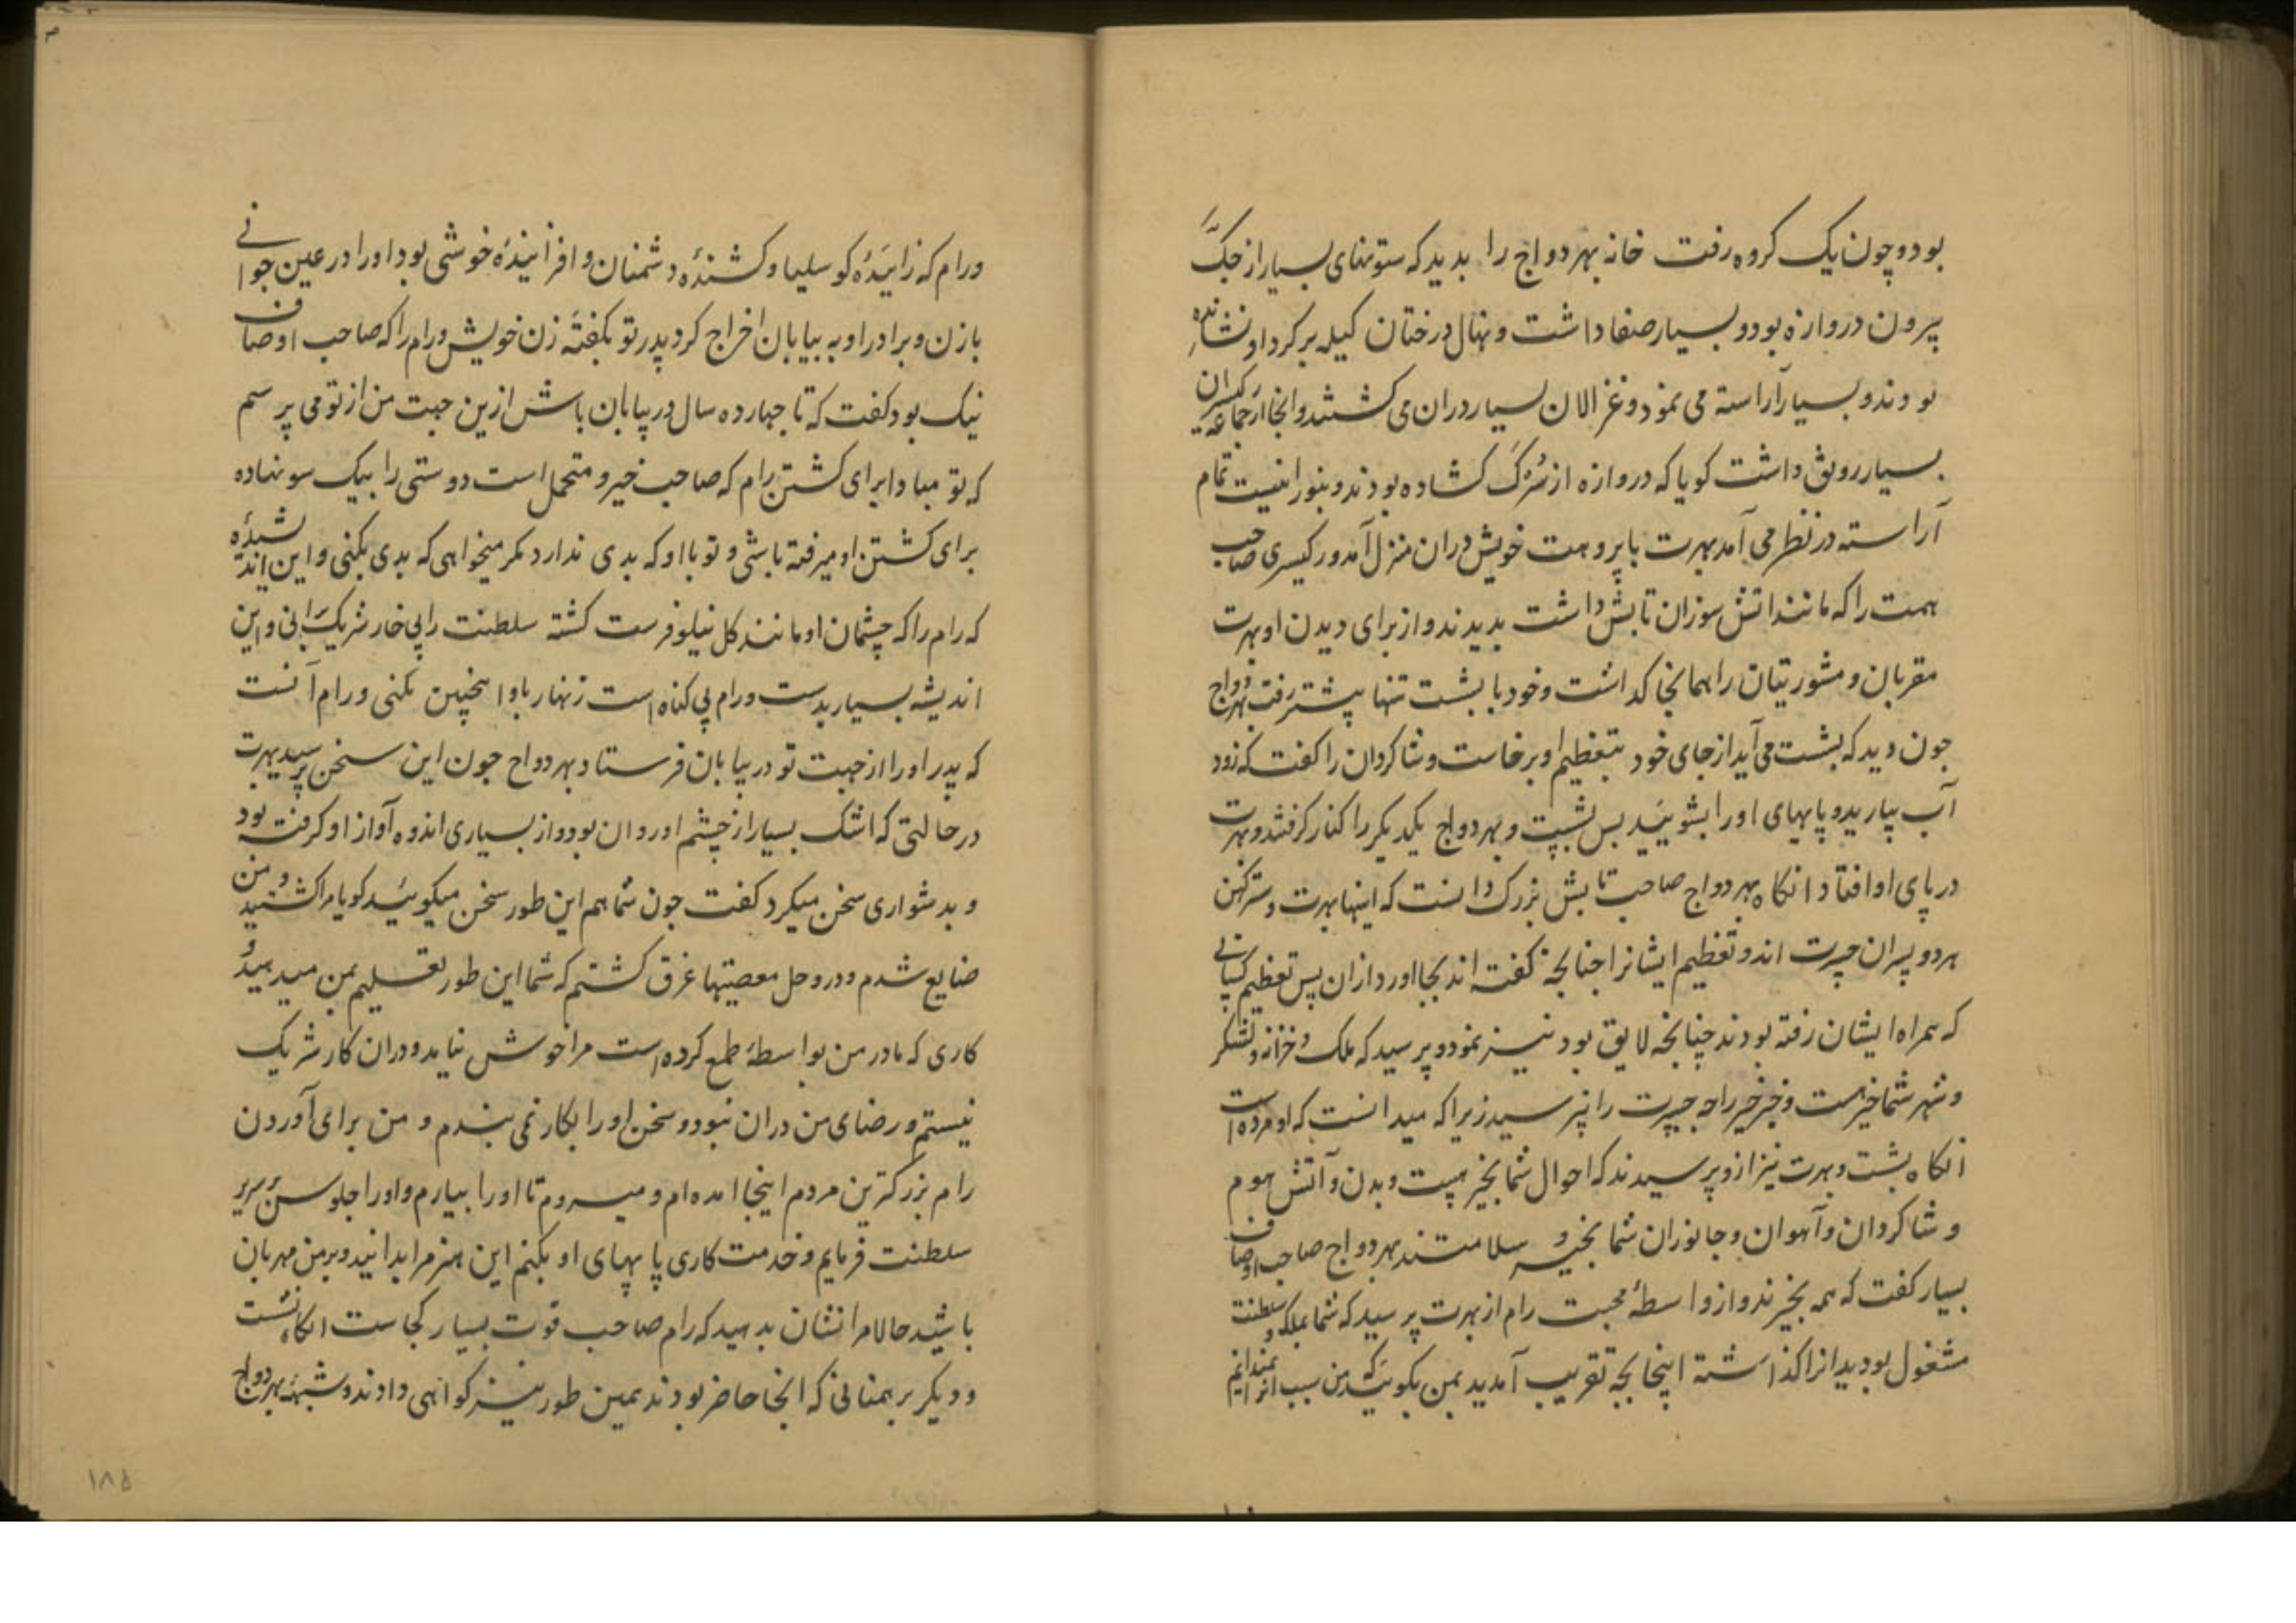 بود و چون یک کروه رفت خانه بهردواج را بدید که ستونهای بسیار از جگ
بیرون دروازه بود و بسیار صفا داشت و نهال درختان کیله بر گرد او نشانده
بودند و بسیار آراسته می نمود و غزالان بسیار دران می گشتند و انجا از جماعه رکیسران
بسیار رونق داشت گویا که دروازه از سُرگ گشاده بودند و
آراسته در نظر می آمد بهرت با پروهت خویش دران منزل آمد و رکیسری صاحب
همت را که مانند اتش سوزان تابش داشت بدیدند و از برای دیدن او بهرت
مقربان و مشورتیان را همانجا گذاشت و خود با بشست تنها پیشتر رفت بهردواج
چون دید که بشست می آید از جای خود بتعظیم او برخاست و شاگردان را گفت که زود
آب بیارید و پایهای او را بشویید پس بشست و بهردواج یکدیگر را کنار گرفتند و بهرت
در پای او افتاد انگاه بهردواج صاحب تابش بزرگ دانست که اینها بهرت و سترگهن
هر دو پسران جسرت اند و تعظیم ایشانرا چنانچه گفته اند بجا اورد ازان پس تعظیم کسانی
که همراه ایشان رفته بودند چنانچه لایق بود نیز نمود و پرسید که ملک و خزانه و لشکر
و شهر شما خیر هست و خبر خیر راجه جسرت را نپرسید زیرا که میدانست که او مرده است
انگاه بشست و بهرت نیز ازو پرسیدند که احوال شما بخیر هست و بدن و آتش هوم
و شاگردان و آهوان و جانوران شما بخیر و سلامتند بهردواج صاحب اوصاف
بسیار گفت که همه بخیرند و از واسطهٔ محبت رام از بهرت پرسید که شما بملک و سلطنت
مشغول بودید انرا گذاشته اینجا بچه تقریب آمدید بمن بگوئید که من سبب انرا نمیدانم
و رام که زائیدهٔ کوسلیا و کشندهٔ دشمنان و افزائیندهٔ خوشی بود او را در عین جوانی
با زن و برادر او به بیابان اخراج کرد پدر تو بگفتهٔ زن خویش رام را که صاحب اوصاف
نیک بود گفت که تا چهارده سال در بیابان باش ازین جهت من از تو می پرسم
که تو مبادا برای کشتن رام که صاحب خیر و متحمل است دوستی را بیک سو نهاده
برای کشتن او میرفته باشی و تو با او که بدی ندارد مگر میخواهی که بدی بکنی و این اندیشیدهٔ
که رام را که چشمان او مانند گل نیلوفرست کشته سلطنت را بی خار شریک برانی و این
اندیشه بسیار بدست و رام بی گناه است زنهار باو اینچنین نکنی و رام آنست
که پدر او را از جهت تو در بیابان فرستاد بهردواج چون این سخن پرسید بهرت
در حالتی که اشک بسیار از چشم او روان بود و از بسیاری اندوه آواز او گرفته بود
و بدشواری سخن میکرد گفت چون شما هم این طور سخن میگوئید گویا مرا کشتید و من
ضایع شدم و در وحل معصیتها غرق گشتم که شما این طور تعلیم بمن میدهید و
کاری که مادر من بواسطهٔ طمع کرده است مرا خوش نیاید و دران کار شریک
نیستم و رضای من دران نبود و سخن او را بکار نمی بندم و من برای آوردن
رام بزرگترین مردم اینجا امده ام و میروم تا او را بیارم و او را جلوس سریر
سلطنت فرمایم و خدمت کاری پایهای او بکنم این هنر مرا بدانید و بر من مهربان
باشید حالا مرا نشان بدهید که رام صاحب قوت بسیار کجاست انگاه بشست
و دیگر برهمنانی که انجا حاضر بودند همین طور نیز گواهی دادند و شبههٔ بهردواج
۱۸۵